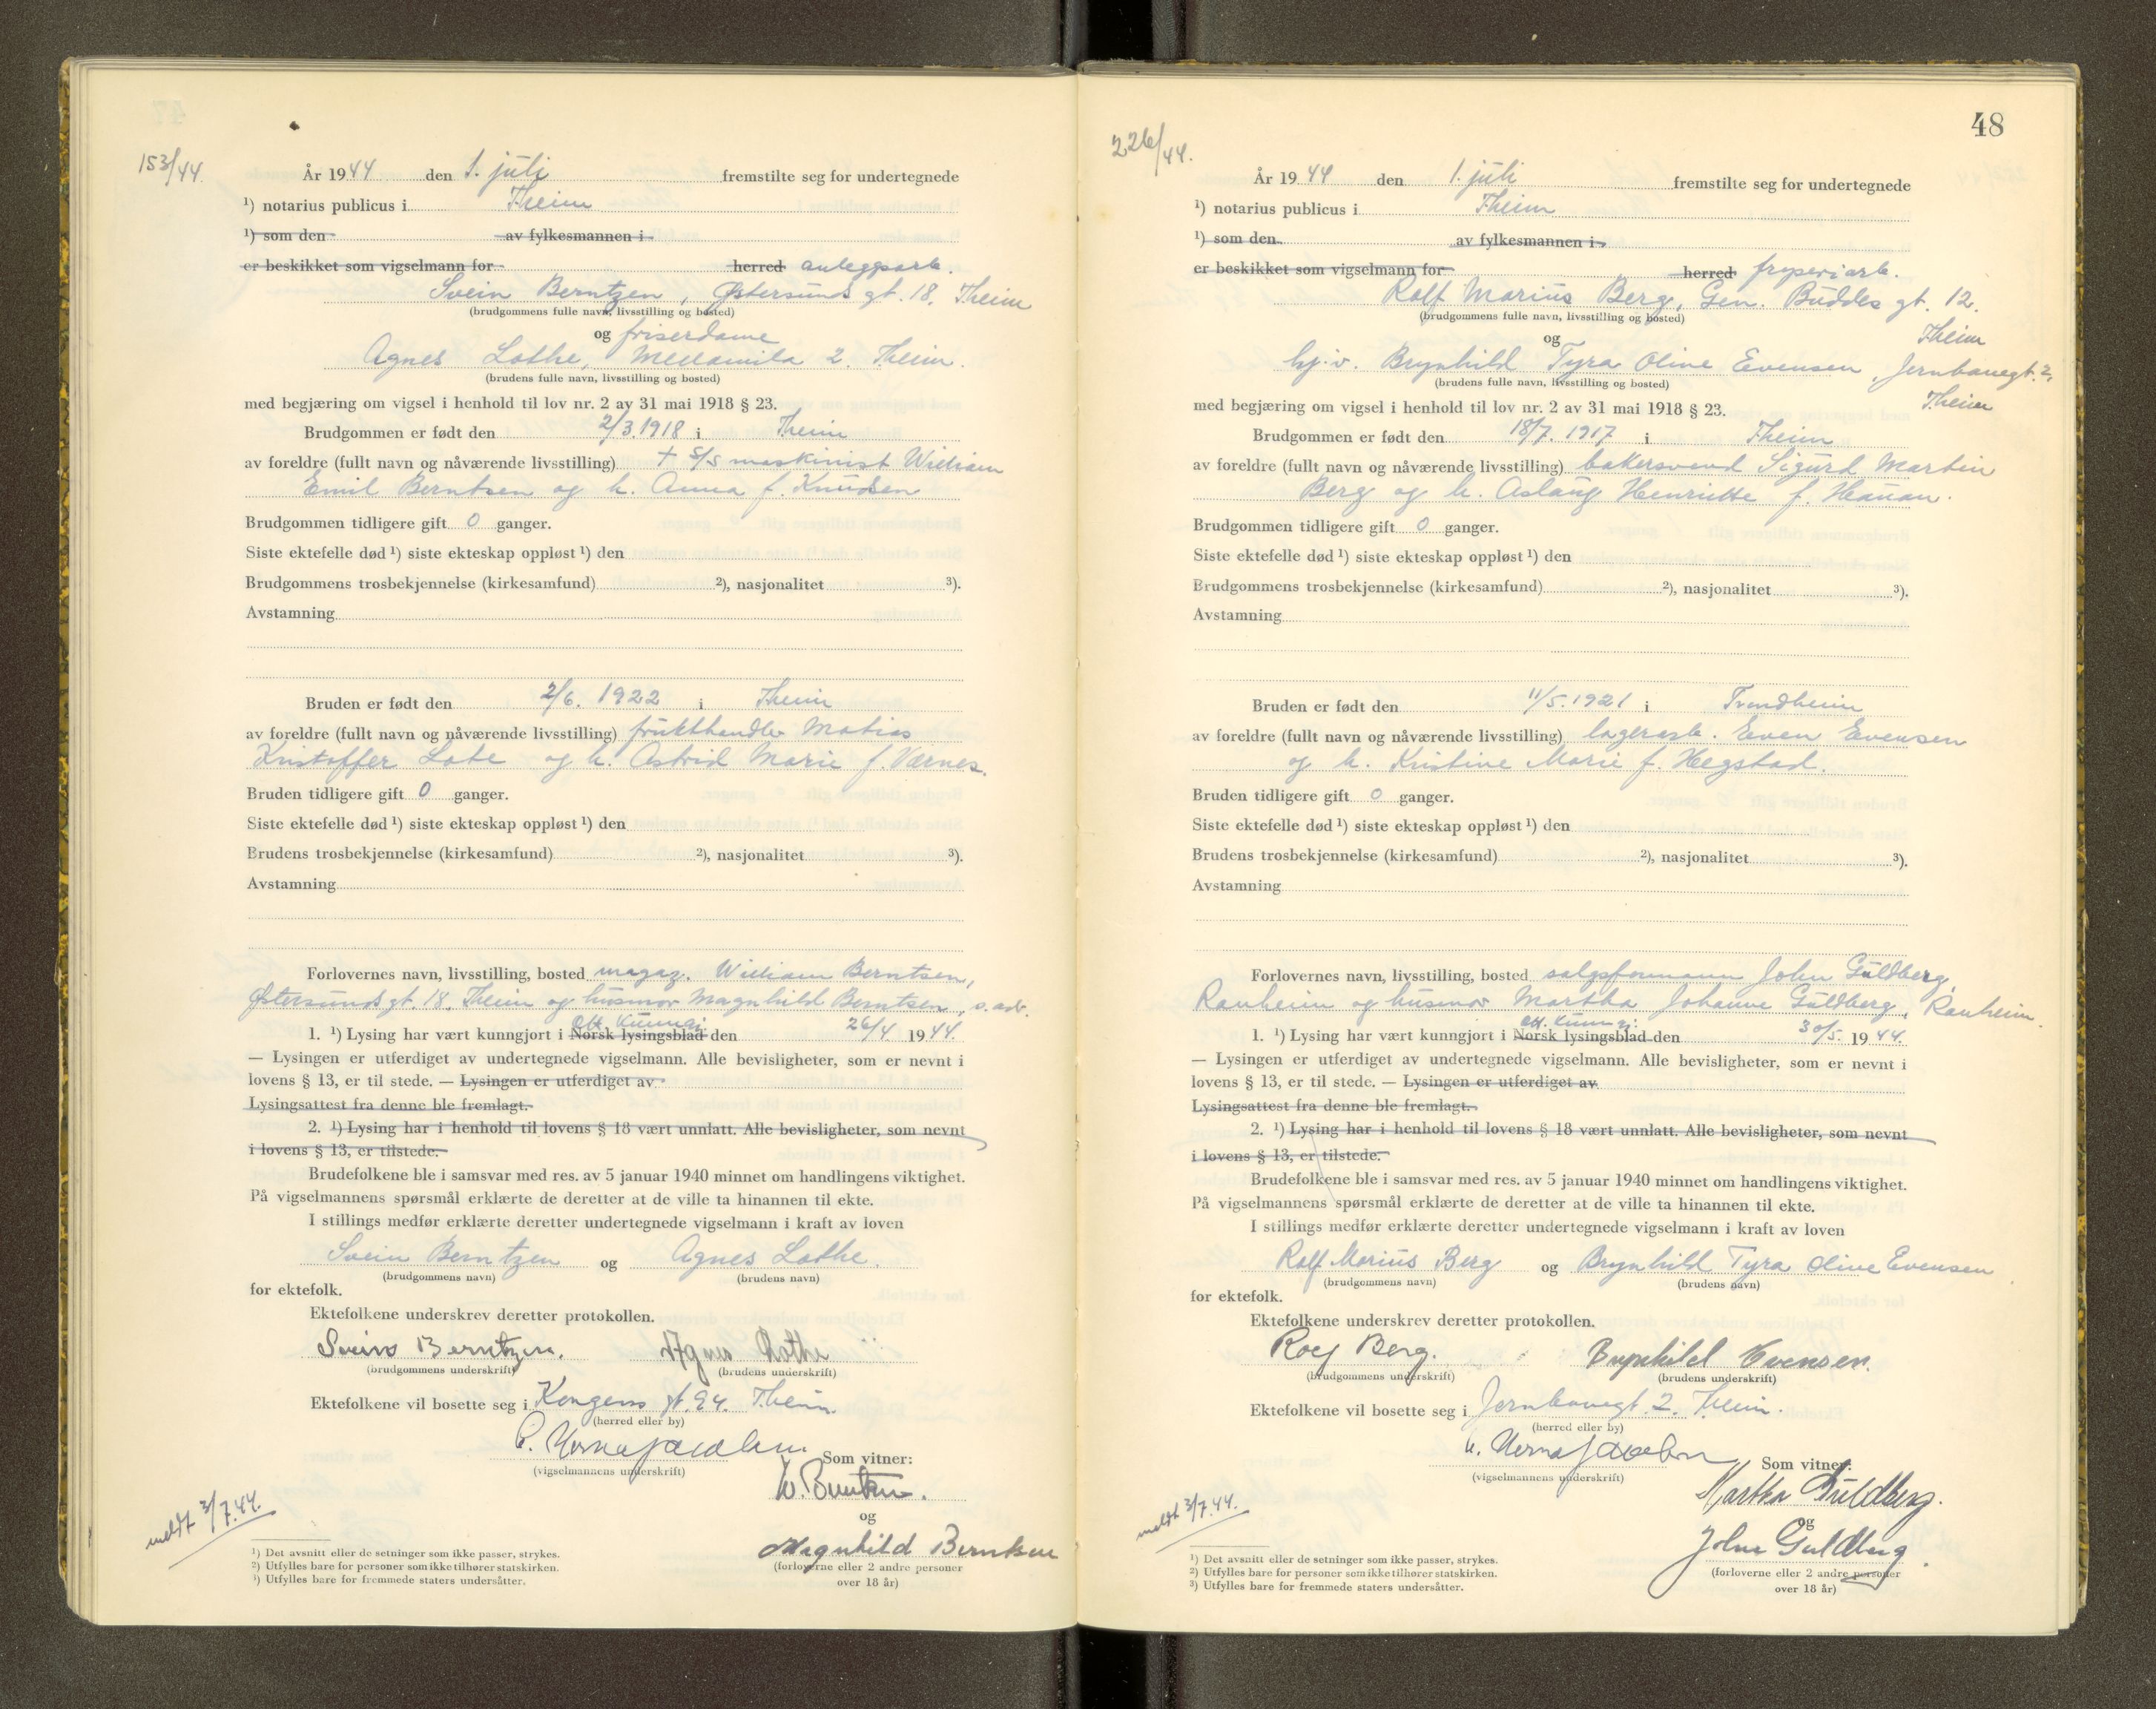 153/44.
År 1944 den 1. juli fremstilte seg for undertegnede
¹) notarius publicus i Theim
¹) som den av fylkesmannen i
er beskikket som vigselmann for herred anleggsarb.
Svein Berntzen, Østersunds gt. 18. Theim
(brudgommens fulle navn, livsstilling og bosted)
og friserdame
Agnes Lothe, Mellomila 2. Theim.
(brudens fulle navn, livsstilling og bosted)
med begjæring om vigsel i henhold til lov nr. 2 av 31 mai 1918 § 23.
Brudgommen er født den 2/3.1918 i Theim
av foreldre (fullt navn og nåværende livsstilling) + S/S maskinist William
Emil Berntsen og h. Anna f. Knudsen
Brudgommen tidligere gift 0 ganger.
Siste ektefelle død ¹) siste ekteskap oppløst ¹) den
Brudgommens trosbekjennelse (kirkesamfund) ²), nasjonalitet ³).
Avstamning
Bruden er født den 2/6. 1922 i Theim
av foreldre (fullt navn og nåværende livsstilling) frukthandler Matias
Kristoffer Lote og h. Astrid Marie f. Værnes.
Bruden tidligere gift 0 ganger.
Siste ektefelle død ¹) siste ekteskap oppløst ¹) den
Brudens trosbekjennelse (kirkesamfund) ²), nasjonalitet ³).
Avstamning
Forlovernes navn, livsstilling, bosted magaz. William Berntsen,
Østersunds gt. 18. Theim og husmor Magnhild Berntsen, s. adr.
off. kunngj.
1. ¹) Lysing har vært kunngjort i Norsk lysingsblad den 26/4 1944.
— Lysingen er utferdiget av undertegnede vigselmann. Alle bevisligheter, som er nevnt i
lovens § 13, er til stede. — Lysingen er utferdiget av
Lysingsattest fra denne ble fremlagt.
2. ¹) Lysing har i henhold til lovens § 18 vært unnlatt. Alle bevisligheter, som nevnt
i lovens § 13, er tilstede.
Brudefolkene ble i samsvar med res. av 5 januar 1940 minnet om handlingens viktighet.
På vigselmannens spørsmål erklærte de deretter at de ville ta hinannen til ekte.
I stillings medfør erklærte deretter undertegnede vigselmann i kraft av loven
Svein Berntzen og Agnes Lothe.
(brudgommens navn) (brudens navn)
for ektefolk.
Ektefolkene underskrev deretter protokollen.
Svein Berntzen. Agnes Lothe
(brudgommens underskrift) (brudens underskrift)
Ektefolkene vil bosette seg i Kongens gt. 94. Theim.
(herred eller by)
Som vitner:
(vigselmannens underskrift)
W. Berntsen.
og
Magnhild Berntsen
(forloverne eller 2 andre personer
over 18 år)
meldt 3/7.44.
¹) Det avsnitt eller de setninger som ikke passer, strykes.
²) Utfylles bare for personer som ikke tilhører statskirken.
³) Utfylles bare for fremmede staters undersåtter.
48
226/44.
År 1944 den 1. juli fremstilte seg for undertegnede
¹) notarius publicus i Theim
¹) som den av fylkesmannen i
er beskikket som vigselmann for herred fryseriarb.
Rolf Marius Berg, Gen. Buddes gt. 12.
(brudgommens fulle navn, livsstilling og bosted)
Theim
og
hj.v. Brynhild Tyra Oline Evensen, Jernbanegt. 2,
(brudens fulle navn, livsstilling og bosted)
Theim
med begjæring om vigsel i henhold til lov nr. 2 av 31 mai 1918 § 23.
Brudgommen er født den 18/7. 1917 i Theim
av foreldre (fullt navn og nåværende livsstilling) bakersvend Sigurd Martin
Berg og h. Aslaug Henriette f. Hanan.
Brudgommen tidligere gift 0 ganger.
Siste ektefelle død ¹) siste ekteskap oppløst ¹) den
Brudgommens trosbekjennelse (kirkesamfund) ²), nasjonalitet ³).
Avstamning
Bruden er født den 11/5.1921 i Trondheim
av foreldre (fullt navn og nåværende livsstilling) lagerarb. Even Evensen
og h. Kristine Marie f. Hegstad.
Bruden tidligere gift 0 ganger.
Siste ektefelle død ¹) siste ekteskap oppløst ¹) den
Brudens trosbekjennelse (kirkesamfund) ²), nasjonalitet ³).
Avstamning
Forlovernes navn, livsstilling, bosted salgsformann John Guldberg,
Ranheim og husmor Martha Johanne Guldberg, Ranheim.
off. kunngj.
1. ¹) Lysing har vært kunngjort i Norsk lysingsblad den 30/5. 1944.
— Lysingen er utferdiget av undertegnede vigselmann. Alle bevisligheter, som er nevnt i
lovens § 13, er til stede. — Lysingen er utferdiget av
Lysingsattest fra denne ble fremlagt.
2. ¹) Lysing har i henhold til lovens § 18 vært unnlatt. Alle bevisligheter, som nevnt
i lovens § 13, er tilstede.
Brudefolkene ble i samsvar med res. av 5 januar 1940 minnet om handlingens viktighet.
På vigselmannens spørsmål erklærte de deretter at de ville ta hinannen til ekte.
I stillings medfør erklærte deretter undertegnede vigselmann i kraft av loven
Rolf Marius Berg og Brynhild Tyra Oline Evensen
(brudgommens navn) (brudens navn)
for ektefolk.
Ektefolkene underskrev deretter protokollen.
Rolf Berg. Brynhild Evensen.
(brudgommens underskrift) (brudens underskrift)
Ektefolkene vil bosette seg i Jernbanegt. 2. Theim.
(herred eller by)
Som vitner:
(vigselmannens underskrift)
Martha Guldberg.
og
John Guldberg.
(forloverne eller 2 andre personer
over 18 år)
meldt 3/7.44.
¹) Det avsnitt eller de setninger som ikke passer, strykes.
²) Utfylles bare for personer som ikke tilhører statskirken.
³) Utfylles bare for fremmede staters undersåtter.